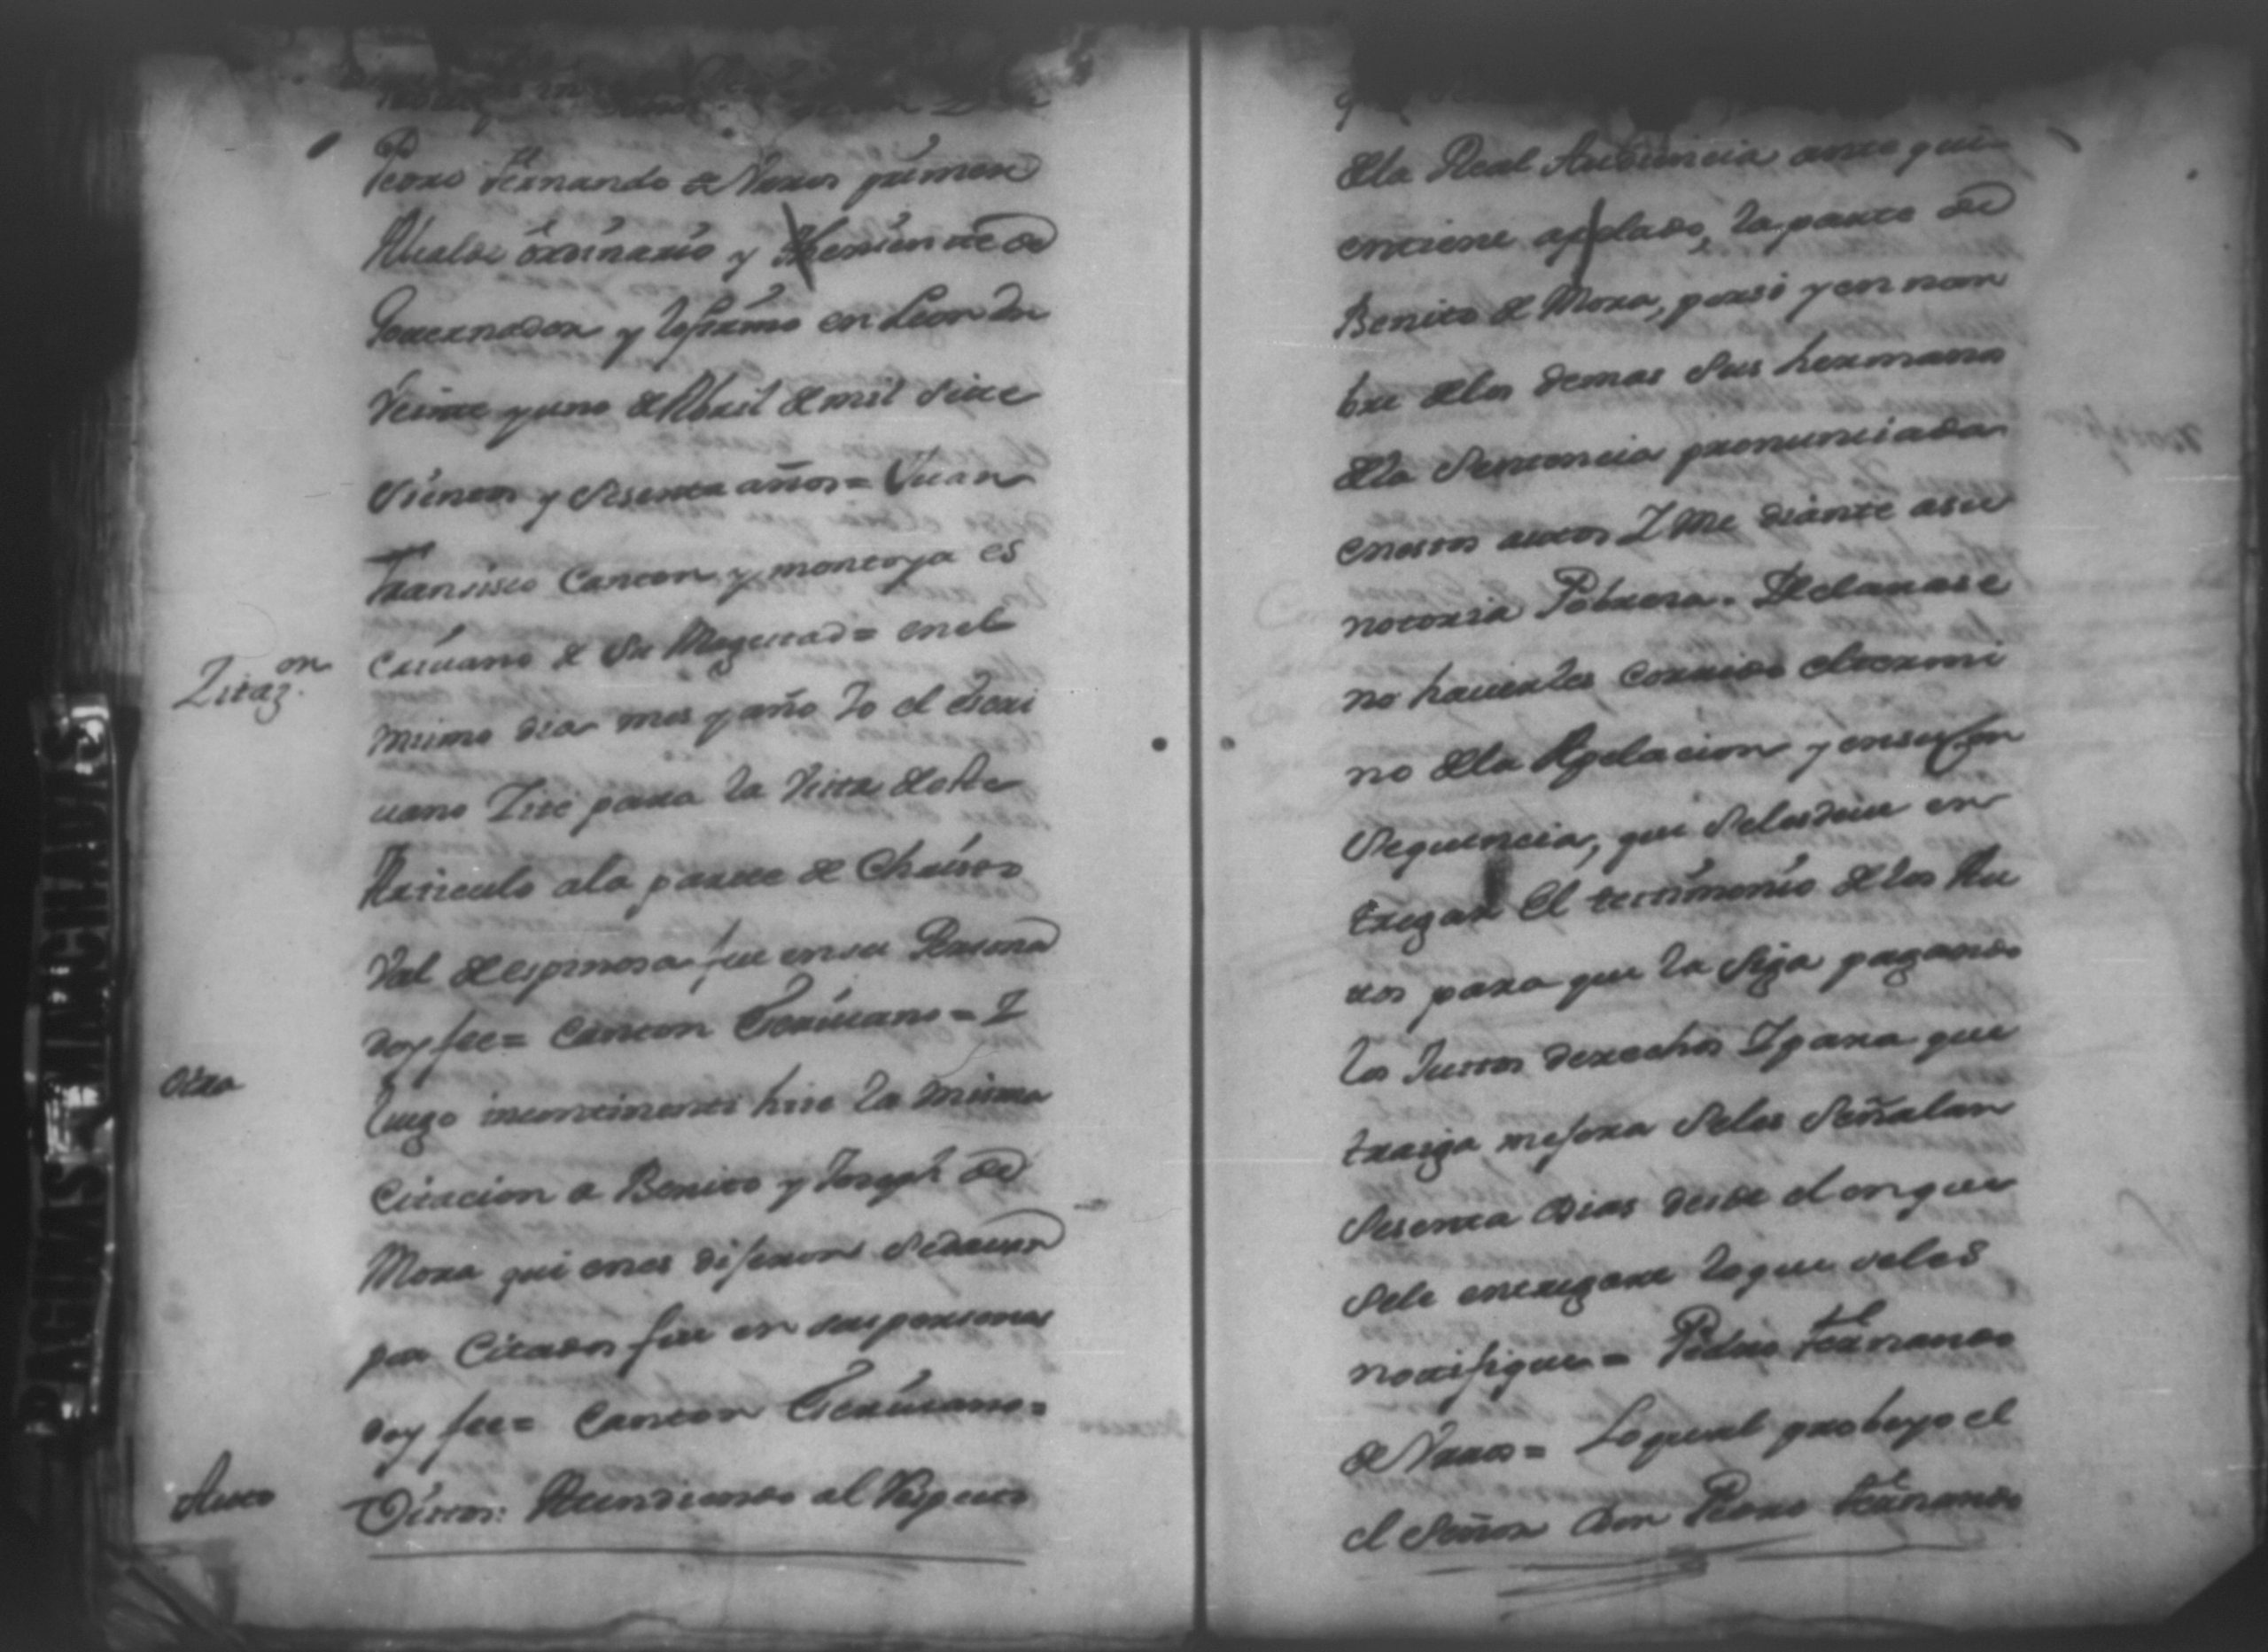 Pedro Fernando de Naxos primero
Alcalde ordinario y Theniente de
Gouernador y lo firmo en Leon En
Veinte y uno de Abril de mil Siete
Sientos y Sesenta años = Juan
Fransisco Canton y montoya es
criuano de Su Magestad = en el
Zitaz.on
mismo dia mes y año Yo el Escri
uano Zite para la Vista deste
Articulo ala parte de Christo
Val de espinosa fue en su Persona
doy fee = Canton Escriuano = Y
Otra
luego incontinenti hise la misma
Citacion a Benito y Joseph de
Mora qui enes dijeron Se dauan
por Citados fue en sus personas
doy fee = Canton Escriuano =
Auto
Vistos: Atendiendo al Respecto
dela Real Audiencia ante qui
en tiene apelado, la parte de
Benito de Mora, por si y en nom
bre delos demas Sus hermanos
dela Sentencia pronunciada
en estos autos Y Me diante asu
notoria Pobresa. Declarase
no hauerles Corrido el termi
no dela Apelacion y en su Con
Sequencia, que Selesdeue en
tregar El testimonio de los Au
tos para que la Siga pagando
los Justos derechos Y para que
traiga mejora Seles Señalan
Sesenta Dias desde el en que
Sele entregare lo que seles
notifique = Pedro Fernando
de Naxos = Lo qual probeyo el
el Señor Don Pedro Fernando